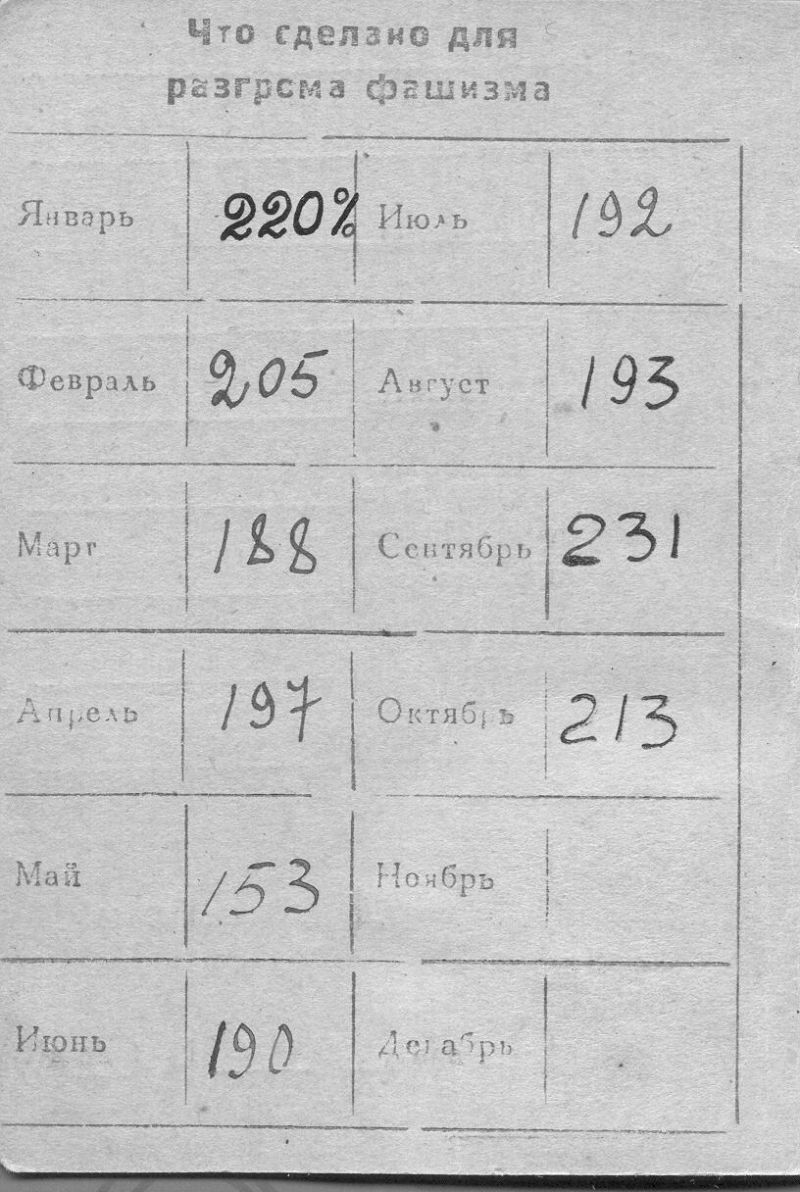 Что сделано для
разгрома фашизма
Январь 220% Июль 192
Февраль 205 Август 193
Март 188 Сентябрь 231
Апрель 197 Октябрь 213
Май 153 Ноябрь
Июнь 190 Декабрь